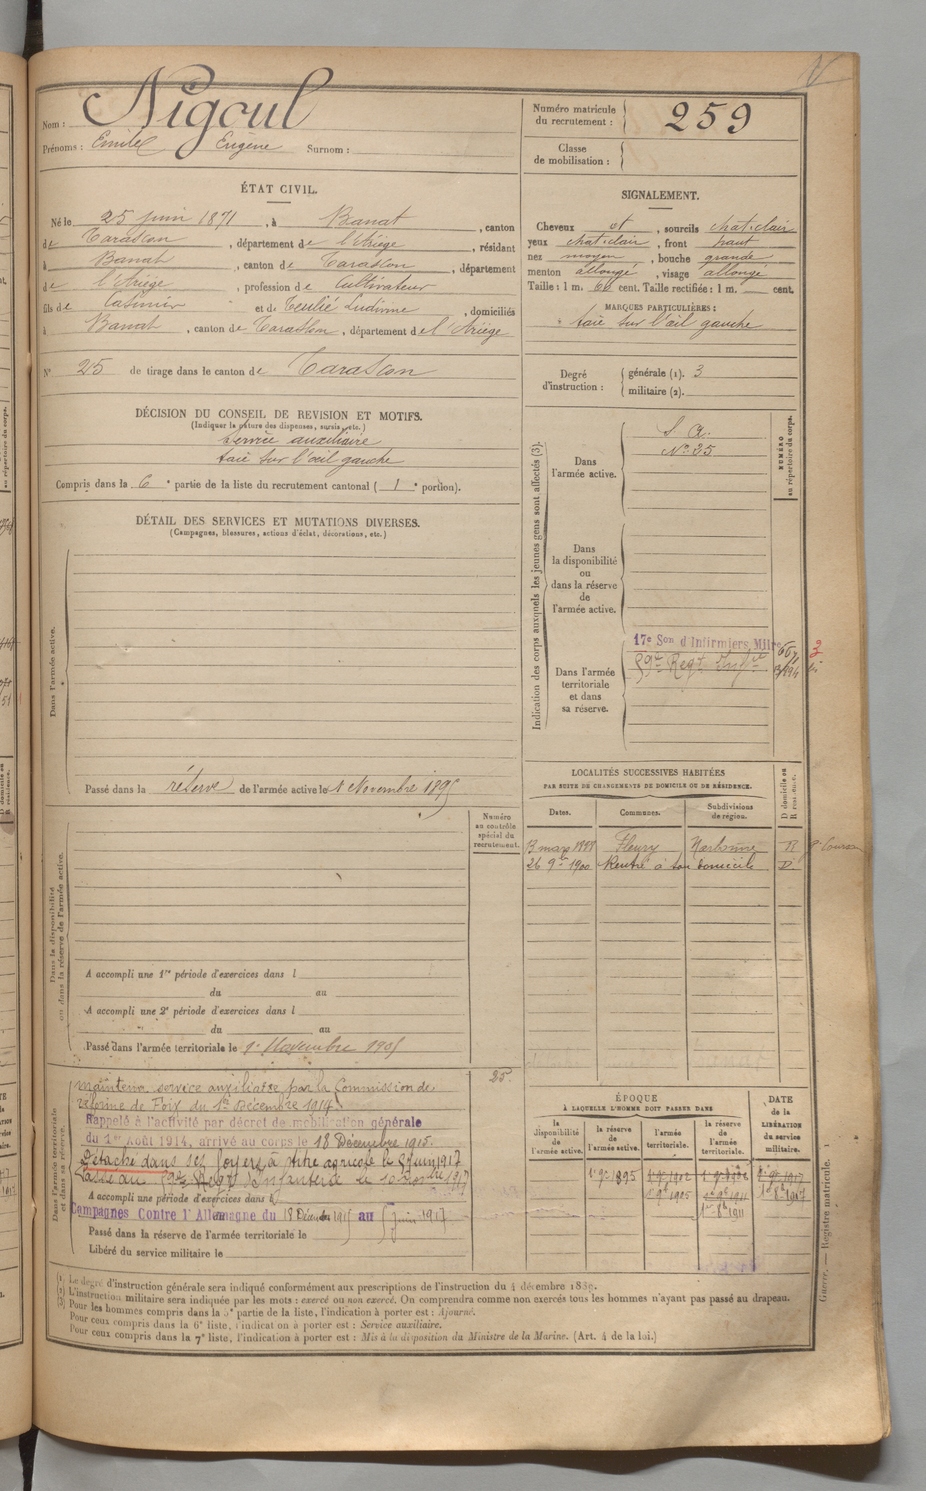 Nom : Nigoul
Prénoms : Emile Eugène Surnom :
Numéro matricule du recrutement : 259
Classe de mobilisation :
ÉTAT CIVIL.
Né le 25 juin 1871, à Banat, canton
de Tarascon, département de l'Ariège, résidant
à Banat, canton de Tarascon, département
de l'Ariège, profession de Cultivateur
fils de Casimir et de Teulié Ludivine, domiciliés
à Banat, canton de Tarascon, département de l'Ariège
N° 25 de tirage dans le canton de Tarascon
SIGNALEMENT.
Cheveux et, sourcils chat-clair
yeux chat-clair, front haut
nez moyen, bouche grande
menton allongé, visage allongé
Taille : 1 m. 60 cent. Taille rectifiée : 1 m. cent.
MARQUES PARTICULIÈRES :
taie sur l'œil gauche
Degré d'instruction : générale (1). 3
militaire (2).
DÉCISION DU CONSEIL DE REVISION ET MOTIFS.
(Indiquer la nature des dispenses, sursis, etc.)
Service auxiliaire
taie sur l'œil gauche
Compris dans la 6e partie de la liste du recrutement cantonal (1e portion).
DÉTAIL DES SERVICES ET MUTATIONS DIVERSES.
(Campagnes, blessures, actions d'éclat, décorations, etc.)
Dans l'armée active.
Passé dans la réserve de l'armée active le 1 Novembre 1895
Indication des corps auxquels les jeunes gens sont affectés (3).
NUMÉRO au répertoire du corps.
Dans l'armée active.
S. A.
N° 35
Dans la disponibilité ou dans la réserve de l'armée active.
Dans l'armée territoriale et dans sa réserve.
17e Son d'Infirmiers Milres
59e Regt Infie
LOCALITÉS SUCCESSIVES HABITÉES
PAR SUITE DE CHANGEMENTS DE DOMICILE OU DE RÉSIDENCE.
Dates. Communes. Subdivisions de région. D domicile ou R résidence.
13 mars 1898 Fleury Narbonne R
26 9re 1900 Rentré à son domicile D
Numéro au contrôle spécial du recrutement.
25.
Dans la disponibilité ou dans la réserve de l'armée active.
A accompli une 1re période d'exercices dans l
du au
A accompli une 2e période d'exercices dans l
du au
Passé dans l'armée territoriale le 1er Novembre 1905
Dans l'armée territoriale et dans sa réserve.
Maintenu service auxiliaire par la Commission de
réforme de Foix du 1er Décembre 1914.
Rappelé à l'activité par décret de mobilisation générale
du 1er Août 1914, arrivé au corps le 18 Décembre 1915.
Détaché dans ses foyers à titre agricole le 5 juin 1917
Passé au 59e Regt d'Infanterie le
A accompli une période d'exercices dans l
Campagnes Contre l'Allemagne du 18 Décembre 1915 au 5 juin 1917
Passé dans la réserve de l'armée territoriale le
Libéré du service militaire le
ÉPOQUE
À LAQUELLE L'HOMME DOIT PASSER DANS
la disponibilité de l'armée active. la réserve de l'armée active. l'armée territoriale. la réserve de l'armée territoriale.
DATE de la LIBÉRATION du service militaire.
1er 9bre 1895
Gaurre. — Registre matricule. 1
(1) Le degré d'instruction générale sera indiqué conformément aux prescriptions de l'instruction du 4 décembre 1889.
(2) L'instruction militaire sera indiquée par les mots : exercé ou non exercé. On comprendra comme non exercés tous les hommes n'ayant pas passé au drapeau.
(3) Pour les hommes compris dans la 5e partie de la liste, l'indication à porter est : Ajourné.
Pour ceux compris dans la 6e liste, l'indication à porter est : Service auxiliaire.
Pour ceux compris dans la 7e liste, l'indication à porter est : Mis à la disposition du Ministre de la Marine. (Art. 4 de la loi.)